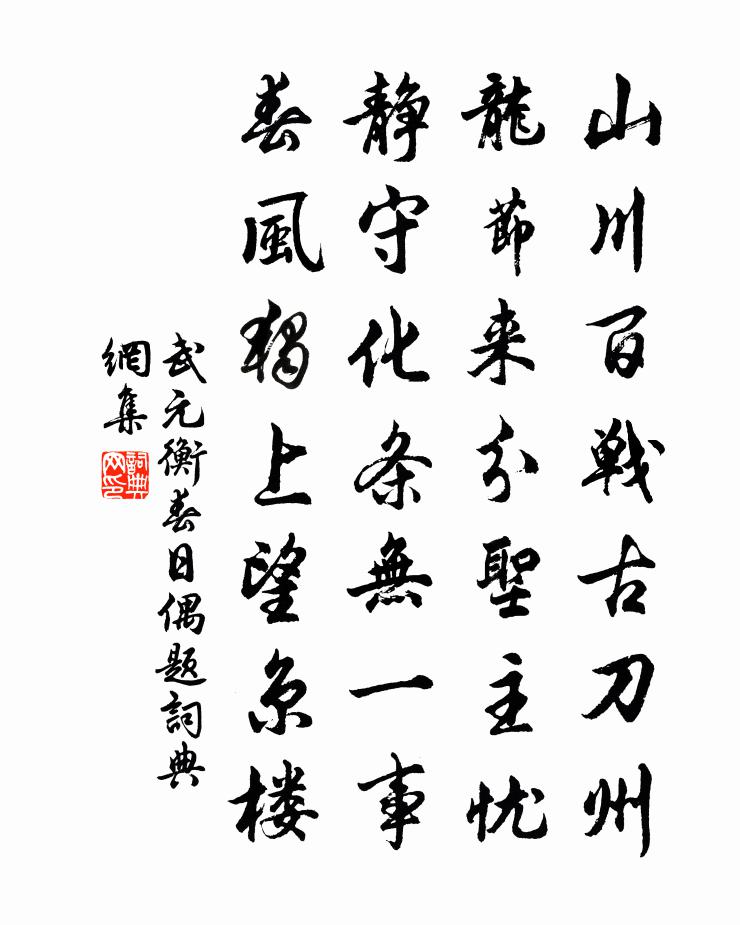 山川百戰古刀州
龍節来分聖主忧
静守化条無一事
春風獨上望京楼
武元衡春日偶題詞典
網集
詞典網印